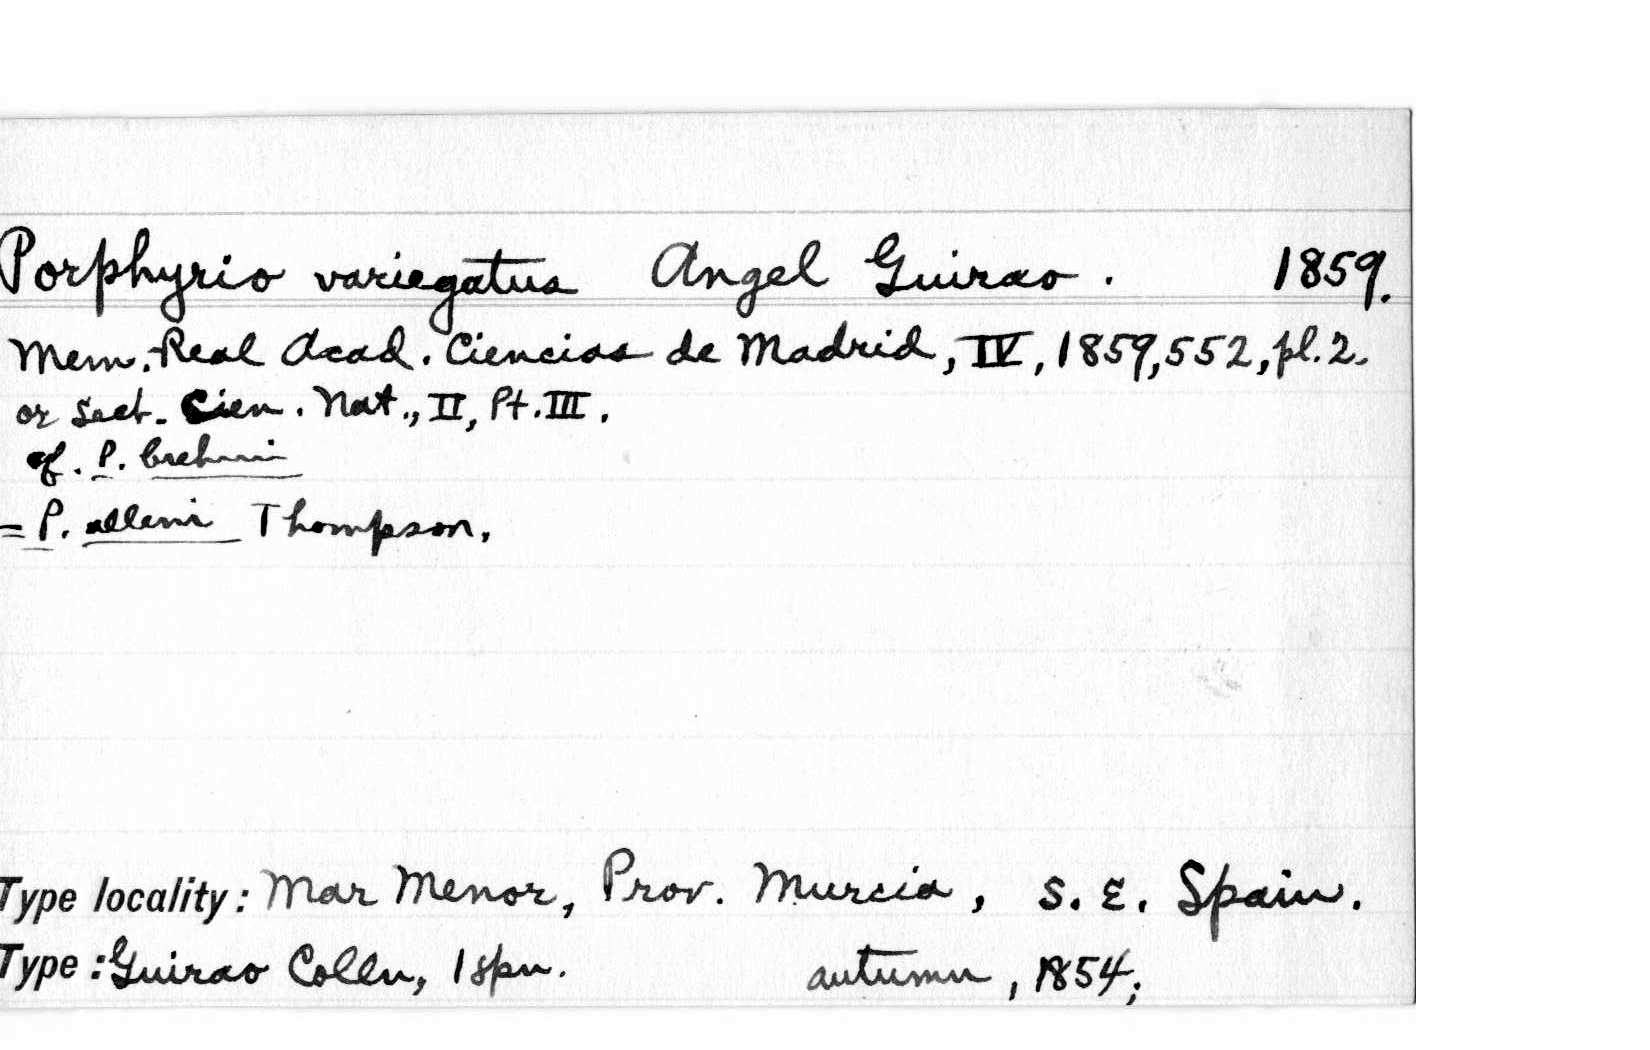 Porphyrio variegatus Angel Guirao. 1859.
Mem. Real Acad. Ciencias de Madrid, IV, 1859, 552, pl. 2.
or Sect. Cien. Nat., II, Pt. III.
cf. P. brehmi
= P. alleni Thompson.
Type locality: Mar Menor, Prov. Murcia, S. E. Spain.
Type: Guirao Colln, 1 spn. autumn, 1854;